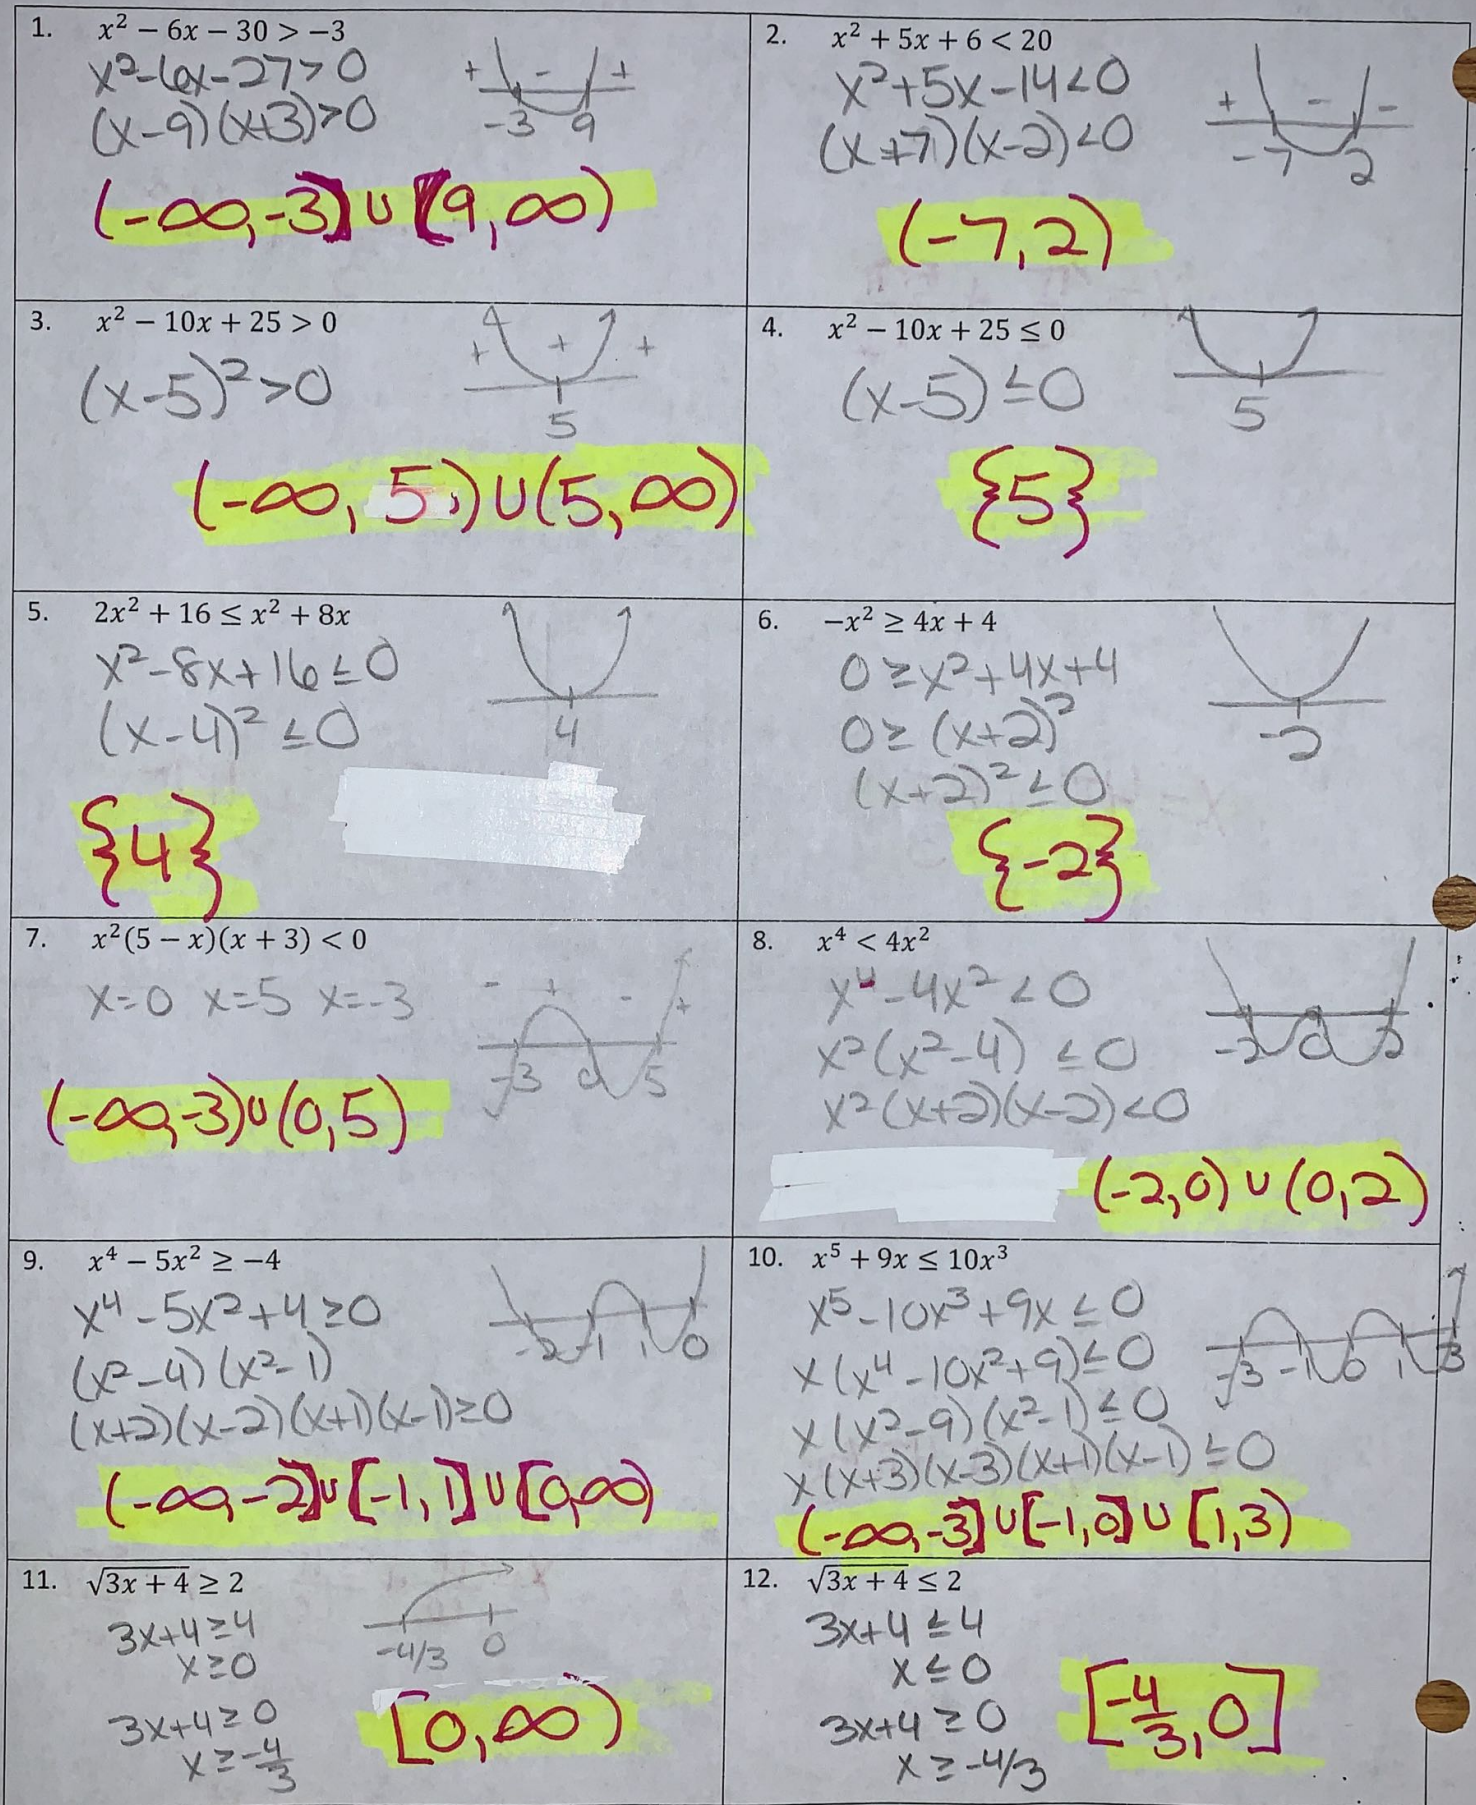 1. x² − 6x − 30 > −3
x²-6x-27>0
(x-9)(x+3)>0
+ - +
-3 9
(-∞,-3]∪[9,∞)
2. x² + 5x + 6 < 20
x²+5x-14<0
(x+7)(x-2)<0
+ - -
-7 2
(-7,2)
3. x² − 10x + 25 > 0
(x-5)²>0
+ + +
5
(-∞,5)∪(5,∞)
4. x² − 10x + 25 ≤ 0
(x-5)≤0
5
{5}
5. 2x² + 16 ≤ x² + 8x
x²-8x+16≤0
(x-4)²≤0
4
{4}
6. −x² ≥ 4x + 4
0≥x²+4x+4
0≥(x+2)²
(x+2)²≤0
-2
{-2}
7. x²(5 − x)(x + 3) < 0
x=0 x=5 x=-3
- + - +
-3 0 5
(-∞,-3)∪(0,5)
8. x⁴ < 4x²
x⁴-4x²<0
x²(x²-4)≤0
x²(x+2)(x-2)<0
-2 0 2
(-2,0)∪(0,2)
9. x⁴ − 5x² ≥ −4
x⁴-5x²+4≥0
(x²-4)(x²-1)
(x+2)(x-2)(x+1)(x-1)≥0
-2 -1 1 0
(-∞,-2]∪[-1,1]∪[0,∞)
10. x⁵ + 9x ≤ 10x³
x⁵-10x³+9x≤0
x(x⁴-10x²+9)≤0
x(x²-9)(x²-1)≤0
x(x+3)(x-3)(x+1)(x-1)≤0
-3 -1 0 1 3
(-∞,-3]∪[-1,0]∪[1,3)
11. √(3x + 4) ≥ 2
3x+4≥4
x≥0
3x+4≥0
x≥-4/3
-4/3 0
[0,∞)
12. √(3x + 4) ≤ 2
3x+4≤4
x≤0
3x+4≥0
x≥-4/3
[-4/3,0]